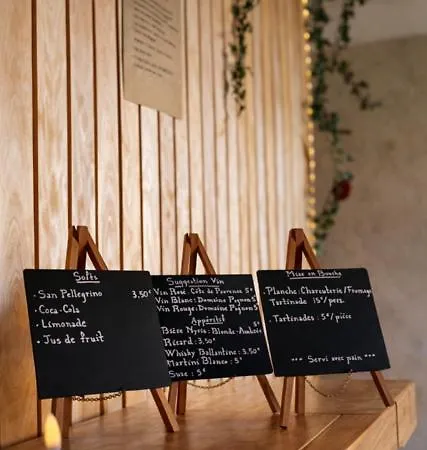 Softs
. San Pellegrino 3,50€
. Coca-Cola
. Limonade
. Jus de fruit
Suggestion Vin
Vin Rosé : Côte de Provence 5€
Vin Blanc : Domaine Pugnon 5€
Vin Rouge : Domaine Pugnon 5€
Apéritif
Bière Myris : Blonde-Ambrée 5€
Ricard : 3,50€
Whisky Ballantine : 3,50€
Martini Blanc : 5€
Suse : 5€
Mise en Bouche
. Planche : Charcuterie/Fromage
Tartinade 15€/pers.
. Tartinades : 5€/pièce
*** Servi avec pain ***